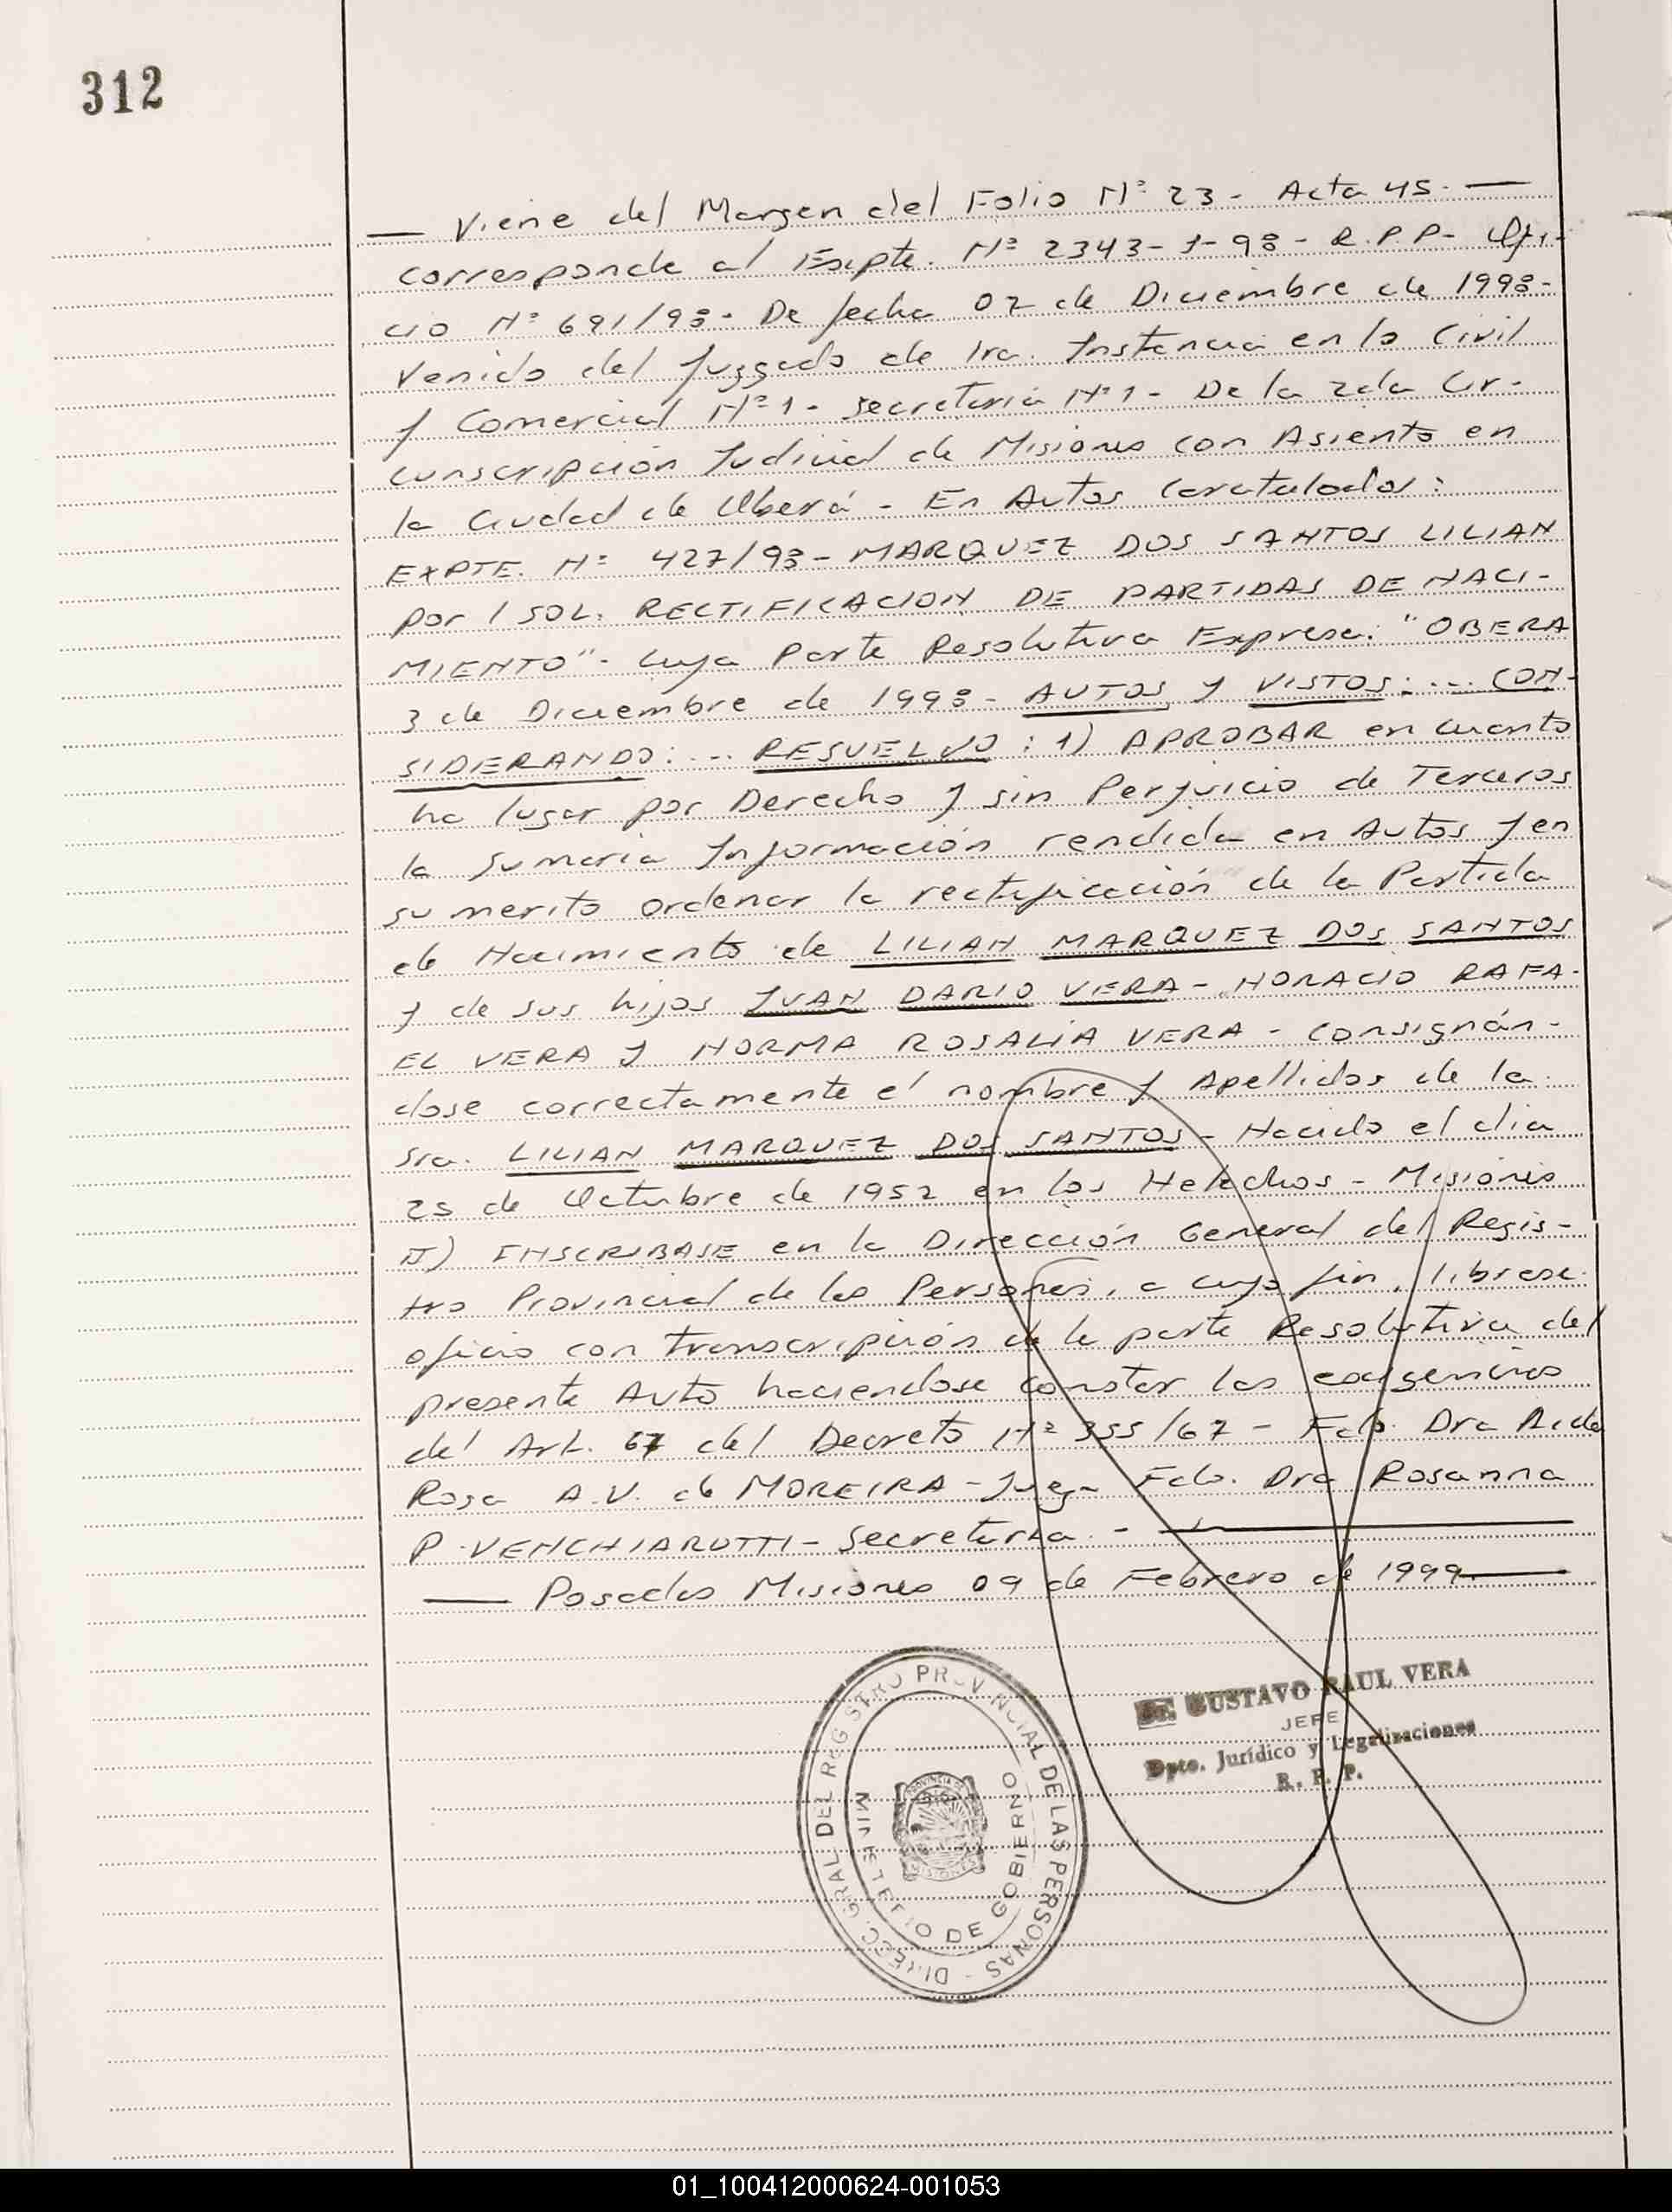 312
— Viene del Margen del Folio Nº 23 - Acta 45. —
corresponde al Expte. Nº 2343-J-98- R.P.P- Ofi-
cio Nº 691/98- De fecha 07 de Diciembre de 1998-
Venido del Juzgado de 1ra. Instancia en lo Civil
y Comercial Nº 1- Secretaria Nº 1- De la 2da Cir-
cunscripción Judicial de Misiones con Asiento en
la Ciudad de Oberá - En Autos Caratulados:
EXPTE. Nº 427/98- MARQUEZ DOS SANTOS LILIAN
por / SOL. RECTIFICACION DE PARTIDAS DE NACI-
MIENTO"- Cuya Parte Resolutiva Expresa: "OBERA
3 de Diciembre de 1998- AUTOS y VISTOS:... CON-
SIDERANDO:... RESUELVO: 1) APROBAR en cuanto
ha lugar por Derecho y sin Perjuicio de Terceros
la Sumaria Información rendida en Autos y en
su merito ordenar la rectificación de la Partida
de Nacimiento de LILIAN MARQUEZ DOS SANTOS
y de sus hijos JUAN DARIO VERA- HORACIO RAFA-
EL VERA y NORMA ROSALIA VERA - consignán-
dose correctamente el nombre y Apellidos de la
Sra. LILIAN MARQUEZ DOS SANTOS- Nacido el dia
25 de Octubre de 1952 en los Helechos - Misiones
II) INSCRIBASE en la Dirección General del Regis-
tro Provincial de las Personas, a cuyo fin, librese
oficio con transcripción de la parte Resolutiva del
presente Auto haciendose constar las exigencias
del Art. 67 del Decreto Nº 355/67 - Fdo. Dra Aida
Rosa A.V. de MOREIRA - Juez- Fdo. Dra Rosanna
P. VENCHIARUTTI- Secretaria. -
— Posadas Misiones 09 de Febrero de 1999. —
GUSTAVO RAUL VERA
JEFE
Dpto. Jurídico y Legalizaciones
R. P. P.
DIRECC. GRAL DEL REGISTRO PROVINCIAL DE LAS PERSONAS -
MINISTERIO DE GOBIERNO
PROVINCIA DE
MISIONES
01_100412000624-001053